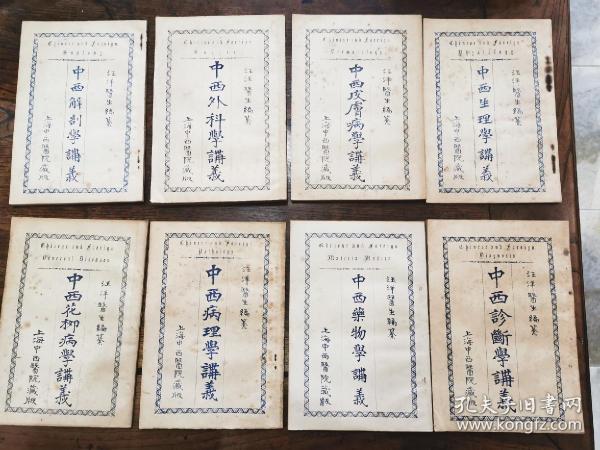 Chinese and Foreign
汪洋醫生編纂
中西解剖學講義
上海中西醫院藏版
Chinese and Foreign
汪洋醫生編纂
中西外科學講義
上海中西醫院藏版
Chinese and Foreign
汪洋醫生編纂
中西皮膚病學講義
上海中西醫院藏版
Chinese and Foreign
汪洋醫生編纂
中西生理學講義
上海中西醫院藏版
Chinese and Foreign
Venereal Diseases
汪洋醫生編纂
中西花柳病學講義
上海中西醫院藏版
Chinese and Foreign
Pathology
汪洋醫生編纂
中西病理學講義
上海中西醫院藏版
Chinese and Foreign
Materia Medica
汪洋醫生編纂
中西藥物學講義
上海中西醫院藏版
Chinese and Foreign
Diagnosis
汪洋醫生編纂
中西診斷學講義
上海中西醫院藏版
孔夫子旧书网